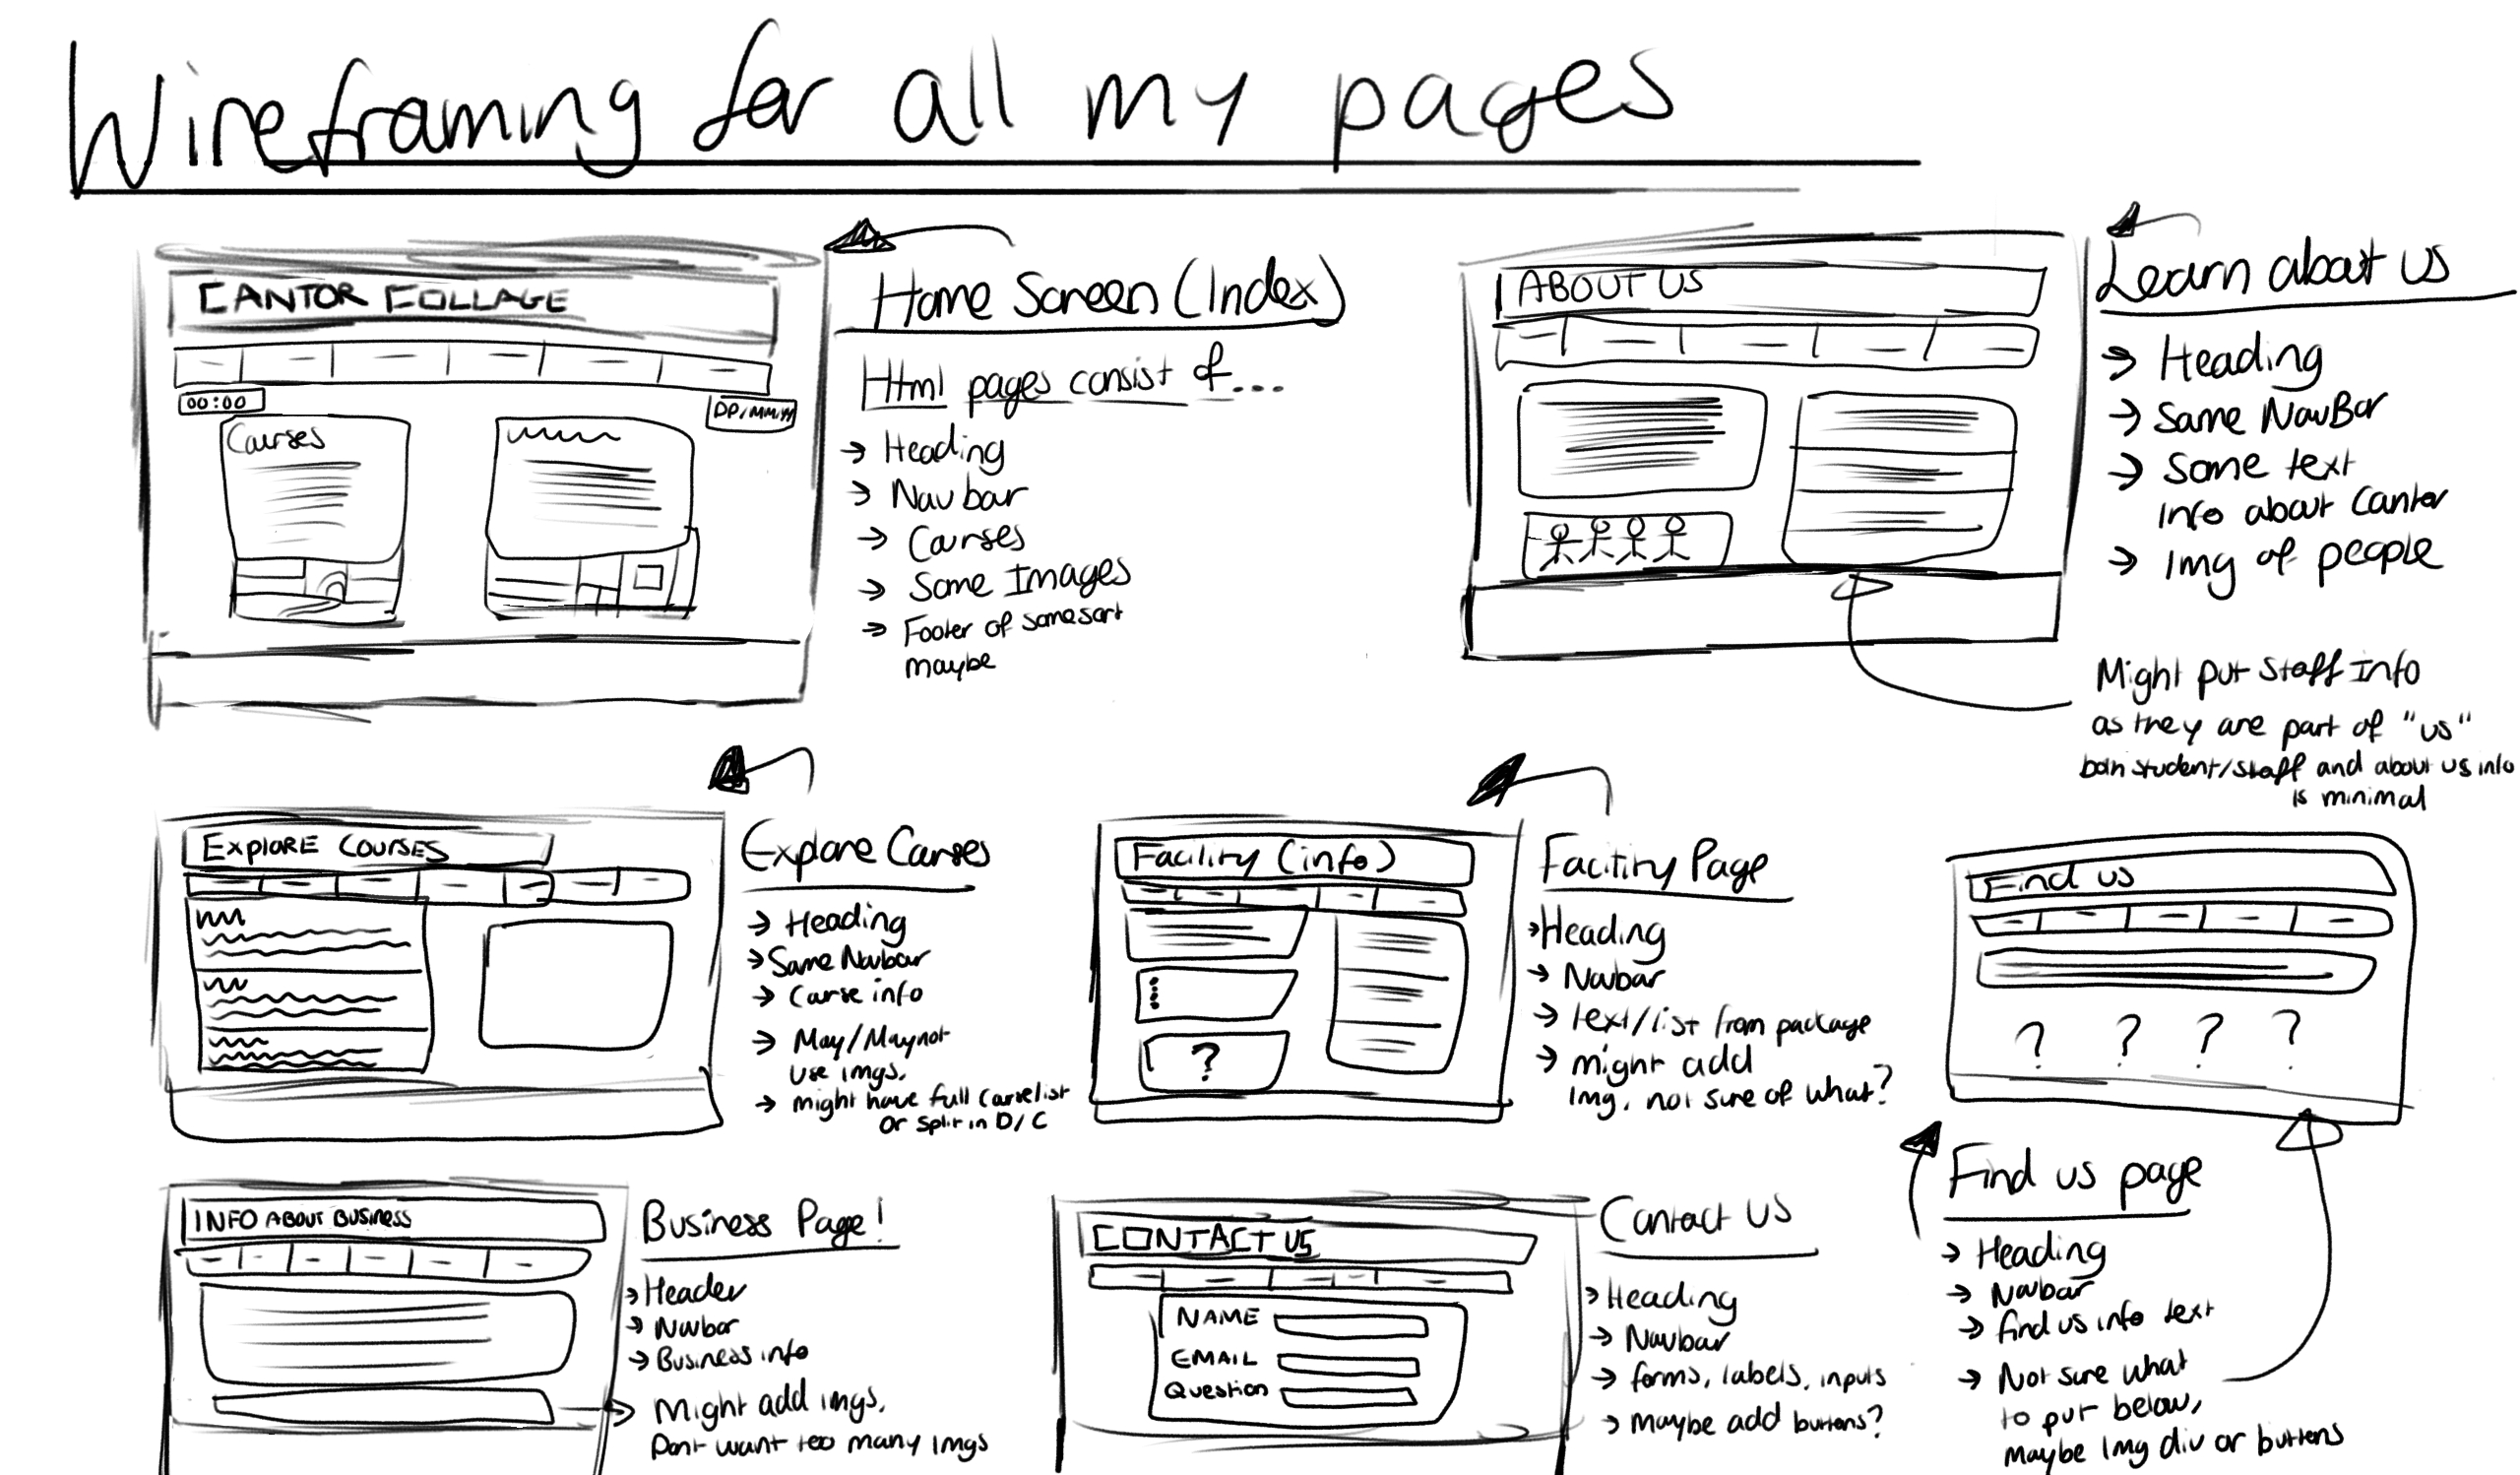 Wireframing for all my pages
CANTOR COLLAGE
00:00
DD/MM/YY
Courses
Home Screen (Index)
Html pages consist of...
→ Heading
→ Nav bar
→ Courses
→ Some Images
→ Footer of some sort
maybe
ABOUT US
Learn about us
→ Heading
→ Same NavBar
→ Some text
info about Canter
→ Img of people
Might put Staff Info
as they are part of "us"
both student/staff and about us info
is minimal
EXPLORE COURSES
Explore Courses
→ Heading
→ Same Navbar
→ Course info
→ May/May not
use imgs.
→ might have full Course list
or split in D/C
Facility (info)
?
Facitity Page
→ Heading
→ Navbar
→ text/list from package
→ might add
Img, not sure of what?
Find us
? ? ? ?
Find us page
→ Heading
→ Navbar
→ find us info text
→ Not sure what
to put below,
maybe Img div or buttons
INFO ABOUT BUSINESS
Business Page!
→ Header
→ Navbar
→ Business info
Might add imgs,
Dont want too many imgs
CONTACT US
NAME
EMAIL
Question
Contact US
→ Heading
→ Navbar
→ forms, labels, inputs
→ Maybe add buttons?